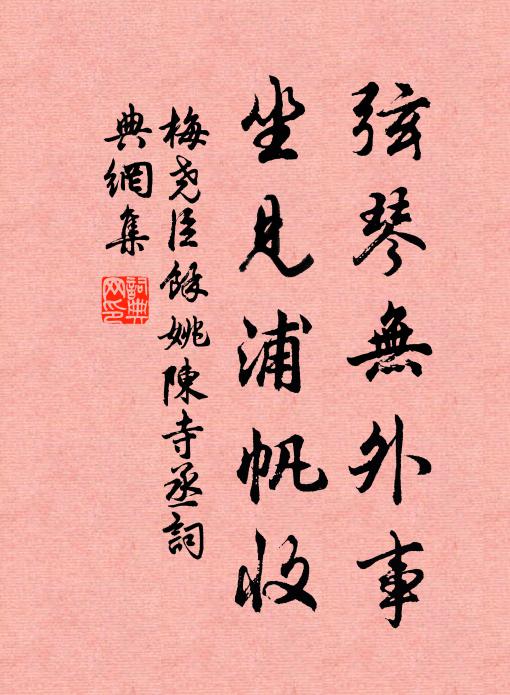 弦琴無外事
坐見浦帆收
梅堯臣餘姚陳寺丞詞
典網集
詞典
网印